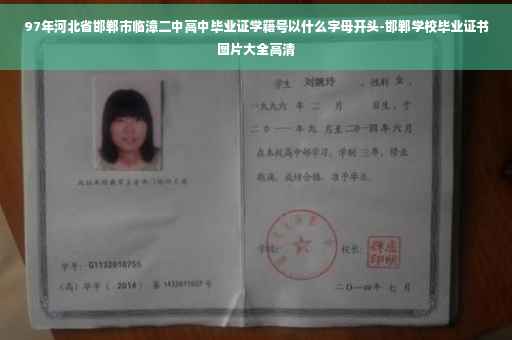 97年河北省邯郸市临漳二中高中毕业证学籍号以什么字母开头-邯郸学校毕业证书
图片大全高清
学生 刘婉玲，性别 女，
一九九六 年 二 月 日生，于
二〇一一年九 月至二〇一四年 六 月
在本校高中部学习，学制 三年，修业
期满，成绩合格，准予毕业。
学校： 校长：
学号：G1132010755
（高）毕字（ 2014 ）第 1432011027 号
二〇一四年 七 月